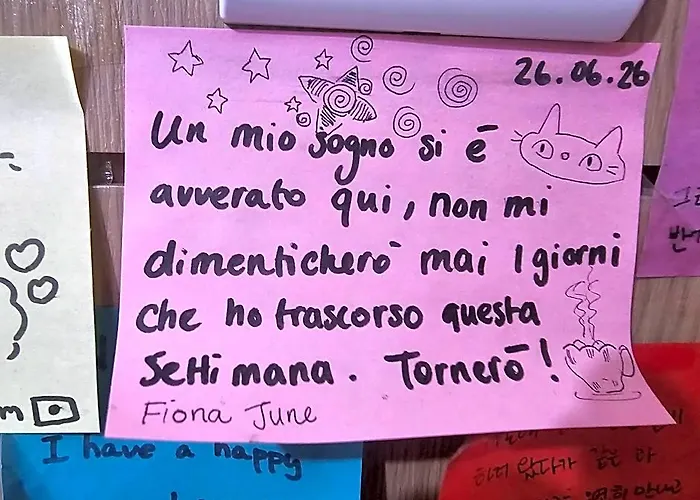 26.06.26
Un mio sogno si é
avverato qui, non mi
dimenticherò mai I giorni
che ho trascorso questa
Settimana. Tornerò!
Fiona June
I have a happy